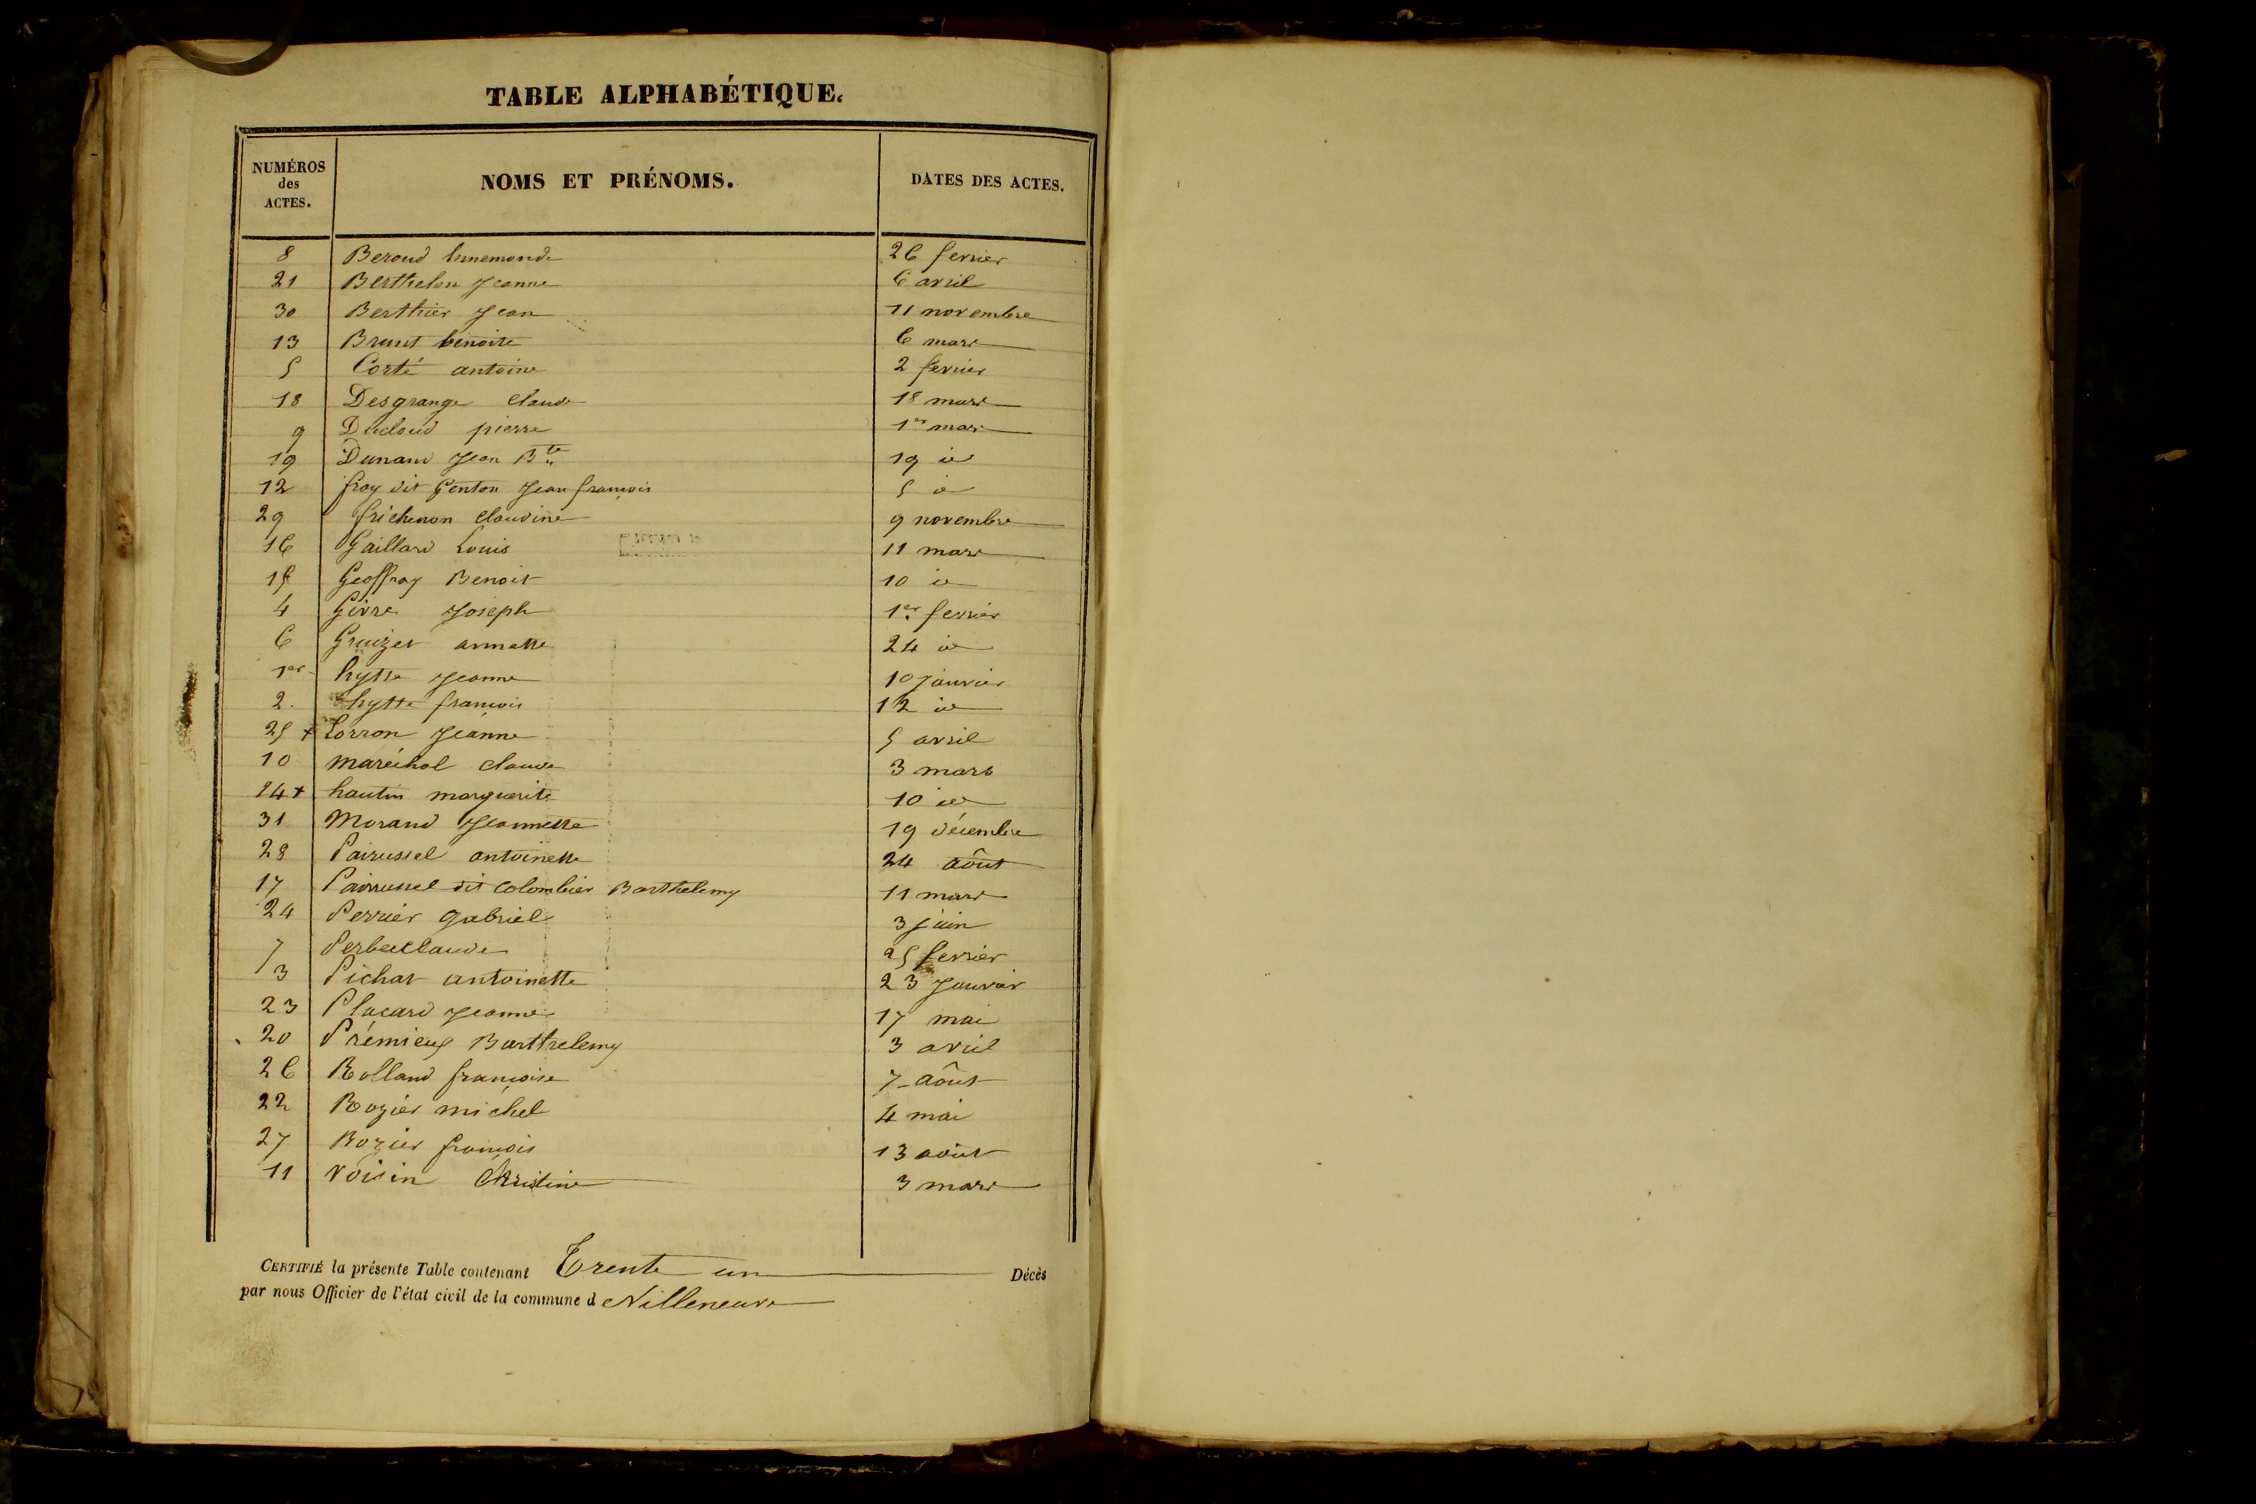 TABLE ALPHABÉTIQUE.
NUMÉROS des ACTES.
NOMS ET PRÉNOMS.
DATES DES ACTES.
8 Beroud 26 fevrier
21 Berthelon Jeanne 6 avril
30 Berthier Jean 11 novembre
13 Brunet benoite 6 mars
5 Corté antoine 2 fevrier
18 Desgrange Claude 18 mars
9 Ducloud pierre 1er mars
19 Dunand Jean Bte 19 id
12 froy dit Genton Jean françois 5 id
29 frichenon Claudine 9 novembre
16 Gaillard Louis 11 mars
15 Geoffray Benoit 10 id
4 Givre Joseph 1er fevrier
6 Gruizet annette 24 id
1er hytte Jeanne 10 Janvier
2. hytte françois 12 id
25 + Lorron Jeanne 5 avril
10 maréchal Claude 3 mars
14 + hautin marguerite 10 id
31 Morand Jeannette 19 décembre
28 Pairussel antoinette 24 aôut
17 Pairussel dit Colombier Barthelemy 11 mars
24 Perrier Gabriel 3 juin
7 Claude 25 fevrier
3 Pichat antoinette 23 Janvier
23 Placard Jeanne 17 mai
20 Prémieux Barthelemy 3 avril
26 Rolland françoise 7 Aôut
22 Rozier michel 4 mai
27 Rozier françois 13 août
11 Voisin Christine 3 mars
CERTIFIÉ la présente Table contenant Trente un Décès
par nous Officier de l'état civil de la commune d Villeneuve